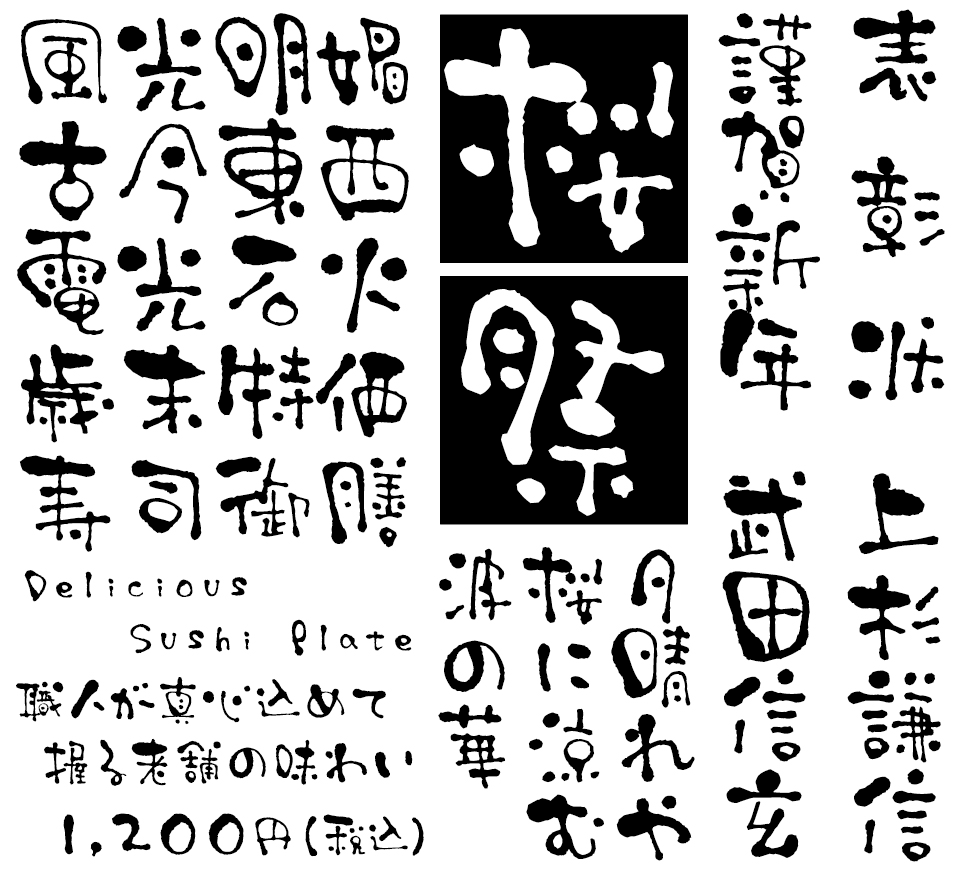 風光明媚
古今東西
電光石火
歳末特価
寿司御膳
Delicious
Sushi Plate
職人が真心込めて
握る老舗の味わい
1,200円(税込)
桜
祭
月晴れや
桜に涼む
波の華
表彰状
上杉謙信
謹賀新年
武田信玄